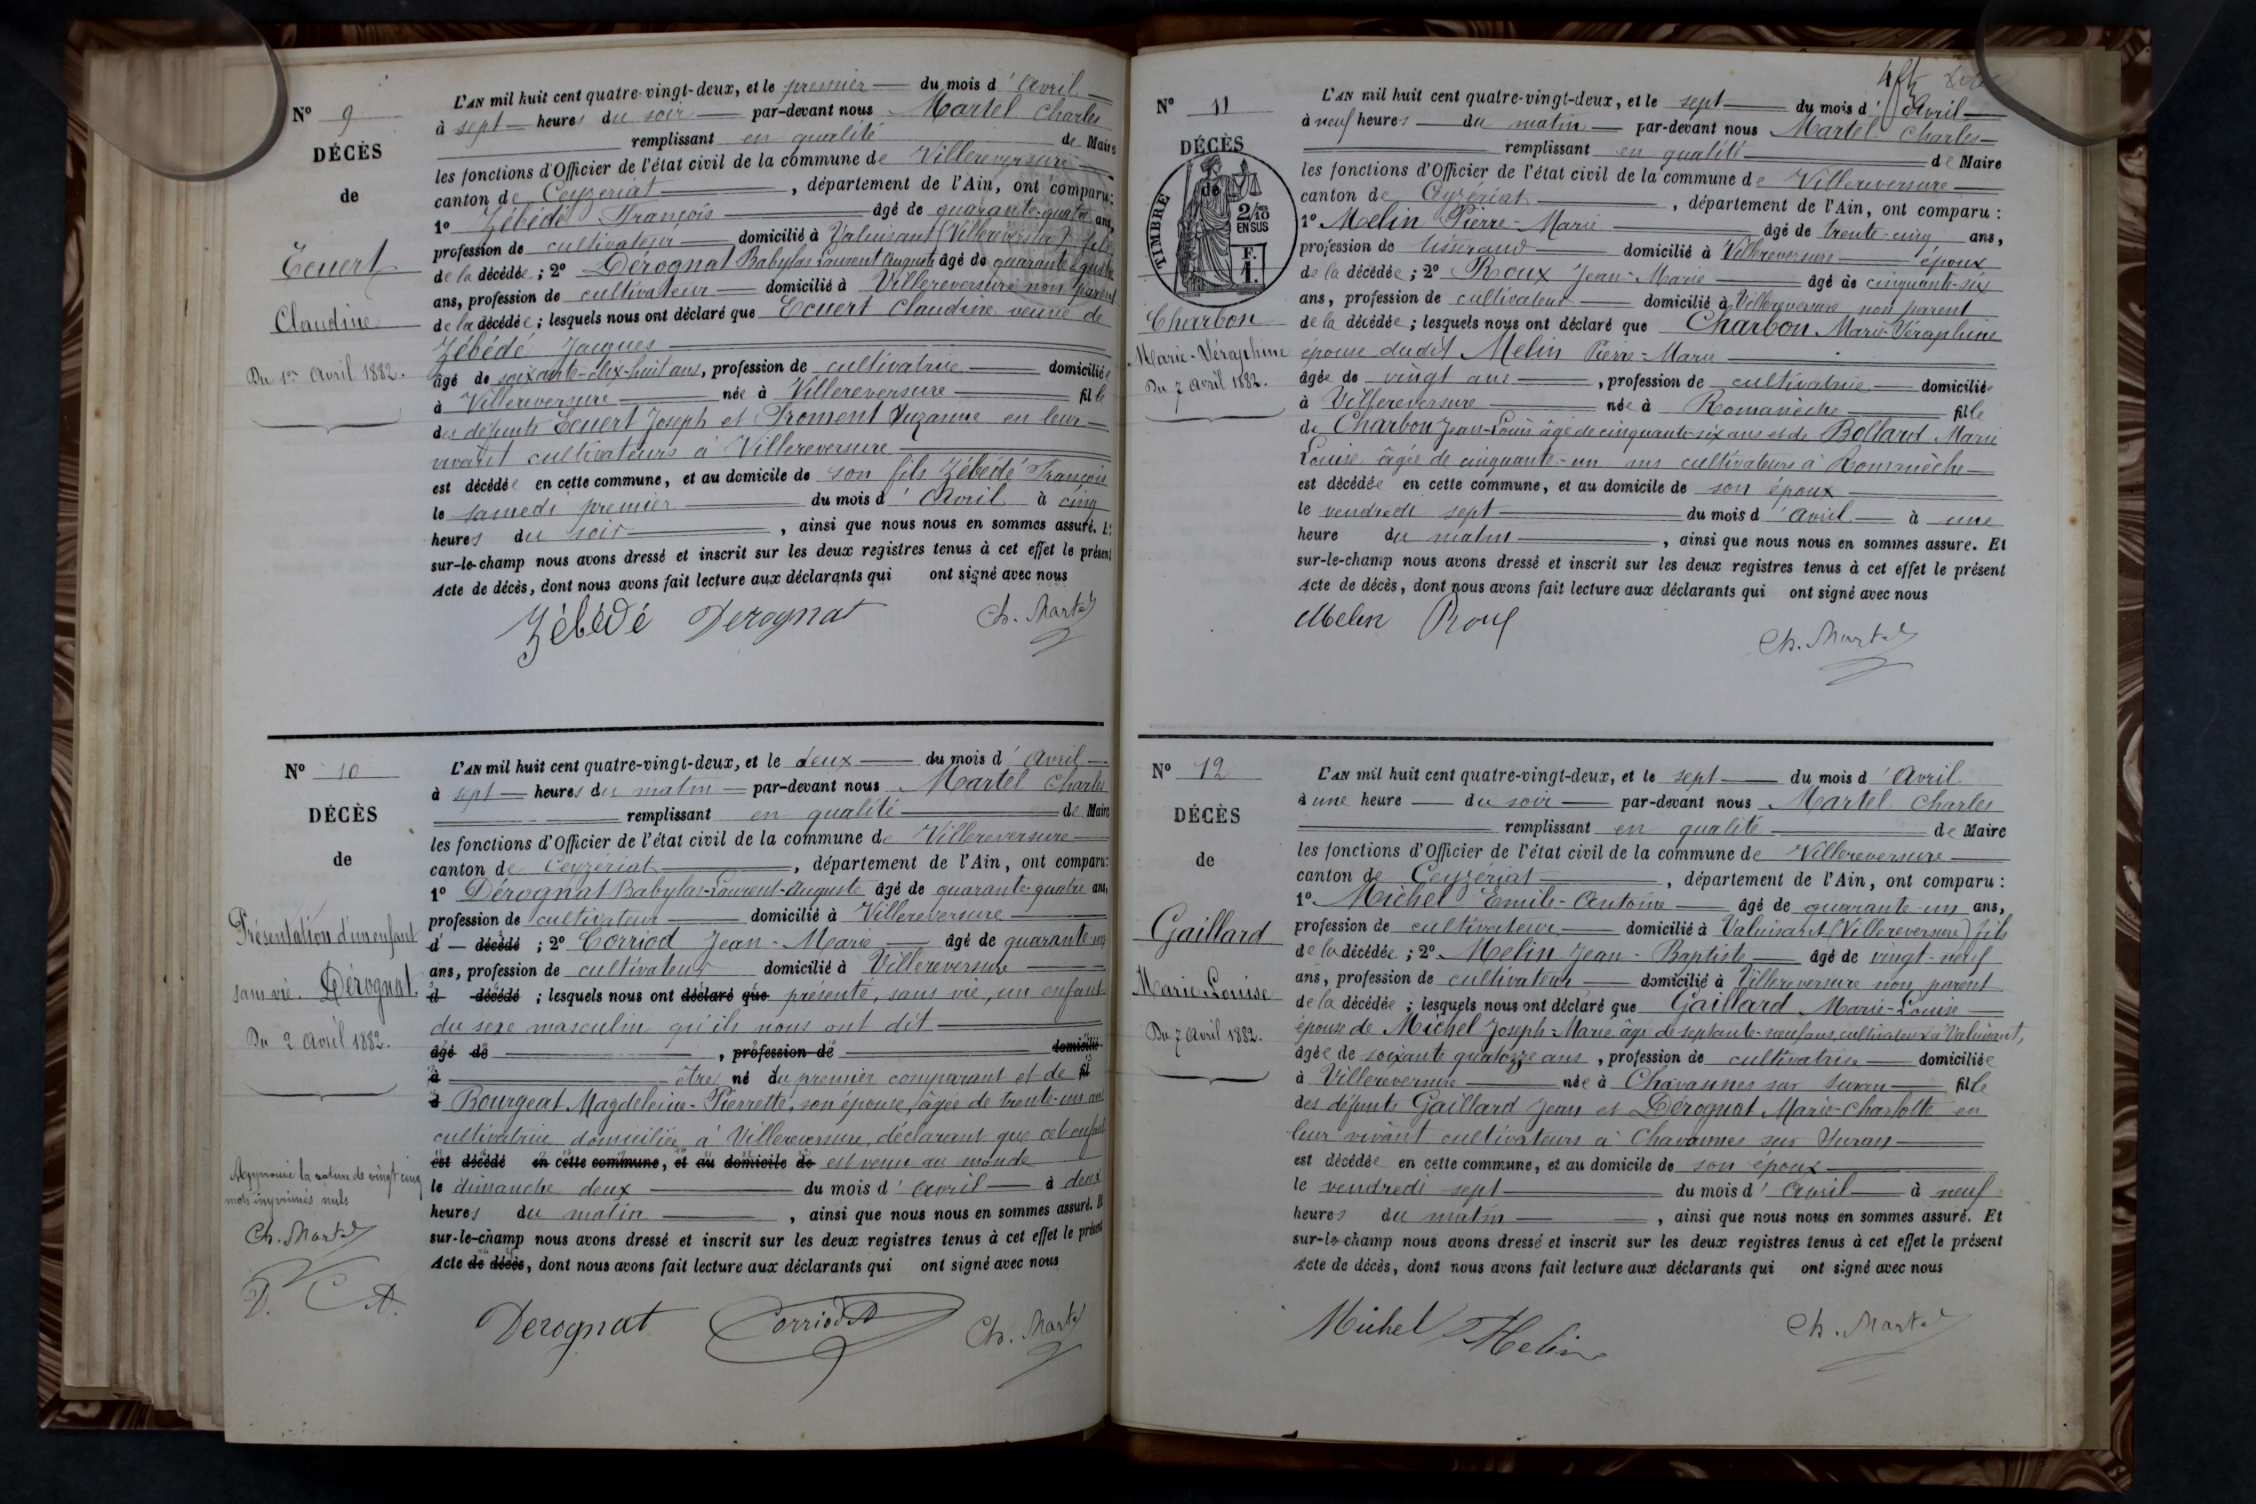 N° 9
DÉCÈS
de
Ecuert
Claudine
Du 1er Avril 1882.
L'AN mil huit cent quatre-vingt-deux, et le premier du mois d'Avril
à sept heures du soir par-devant nous Martel Charles
remplissant en qualité de Maire
les fonctions d'Officier de l'état civil de la commune de Villereversure
canton de Ceyzériat, département de l'Ain, ont comparu:
1° Zébédé François âgé de quarante-quatre ans,
profession de cultivateur domicilié à Valuisant (Villereversure) fils
de la décédée; 2° Dérognat Babylas Laurent Auguste âgé de quarante-quatre
ans, profession de cultivateur domicilié à Villereversure non parent
de la décédée; lesquels nous ont déclaré que Ecuert Claudine veuve de
Zébédé Jacques
âgé de soixante-dix-huit ans, profession de cultivatrice domiciliée
à Villereversure née à Villereversure fille
des défunts Ecuert Joseph et Froment Suzanne en leur
vivant cultivateurs à Villereversure
est décédée en cette commune, et au domicile de son fils Zébédé François
le samedi premier du mois d'Avril à cinq
heures du soir, ainsi que nous nous en sommes assuré. Et
sur-le-champ nous avons dressé et inscrit sur les deux registres tenus à cet effet le présent
Acte de décès, dont nous avons fait lecture aux déclarants qui ont signé avec nous
Zébédé Derognat Ch. Martel
N° 10
DÉCÈS
de
Présentation d'un enfant
sans vie. Dérognat.
Du 2 Avril 1882.
Approuvé la rature de vingt cinq
mots imprimés nuls
Ch. Martel
D. C A.
L'AN mil huit cent quatre-vingt-deux, et le deux du mois d'Avril
à sept heures du matin par-devant nous Martel Charles
remplissant en qualité de Maire
les fonctions d'Officier de l'état civil de la commune de Villereversure
canton de Ceyzériat, département de l'Ain, ont comparu:
1° Dérognat Babylas-Laurent-Auguste âgé de quarante-quatre ans,
profession de cultivateur domicilié à Villereversure
d' décédé; 2° Corriod Jean-Marie âgé de quarante-un
ans, profession de cultivateur domicilié à Villereversure
d décédé; lesquels nous ont déclaré que présenté, sans vie, un enfant
du sexe masculin qu'ils nous ont dit
âgé de, profession de domicilié
à être né du premier comparant et de fil
d Bourgeat Magdeleine-Pierrette, son épouse, âgée de trente-un ans
cultivatrice domiciliée à Villereversure, déclarant que cet enfant
est décédé en cette commune, et au domicile de est venu au monde
le dimanche deux du mois d'Avril à deux
heures du matin, ainsi que nous nous en sommes assuré. Et
sur-le-champ nous avons dressé et inscrit sur les deux registres tenus à cet effet le présent
Acte de décès, dont nous avons fait lecture aux déclarants qui ont signé avec nous
Derognat Corriod Ch. Martel
N° 11
DÉCÈS
de
TIMBRE
2/10
EN SUS
F.
1.
Charbon
Marie-Séraphine
Du 7 Avril 1882.
L'AN mil huit cent quatre-vingt-deux, et le sept du mois d'Avril
à neuf heures du matin par-devant nous Martel Charles
remplissant en qualité de Maire
les fonctions d'Officier de l'état civil de la commune de Villereversure
canton de Ceyzériat, département de l'Ain, ont comparu:
1° Melin Pierre-Marie âgé de trente-cinq ans,
profession de tisserand domicilié à Villereversure époux
de la décédée; 2° Roux Jean-Marie âgé de cinquante-six
ans, profession de cultivateur domicilié à Villereversure non parent
de la décédée; lesquels nous ont déclaré que Charbon Marie-Séraphine
épouse dudit Melin Pierre-Marie
âgée de vingt ans, profession de cultivatrice domiciliée
à Villereversure née à Romanèche fille
de Charbon Jean-Louis âgé de cinquante-six ans et de Bollard Marie
Louise âgée de cinquante-un ans cultivateurs à Romanèche
est décédée en cette commune, et au domicile de son époux
le vendredi sept du mois d'Avril à une
heure du matin, ainsi que nous nous en sommes assuré. Et
sur-le-champ nous avons dressé et inscrit sur les deux registres tenus à cet effet le présent
Acte de décès, dont nous avons fait lecture aux déclarants qui ont signé avec nous
Melin Roux
Ch. Martel
N° 12
DÉCÈS
de
Gaillard
Marie-Louise
Du 7 Avril 1882.
L'AN mil huit cent quatre-vingt-deux, et le sept du mois d'Avril
à une heure du soir par-devant nous Martel Charles
remplissant en qualité de Maire
les fonctions d'Officier de l'état civil de la commune de Villereversure
canton de Ceyzériat, département de l'Ain, ont comparu:
1° Michel Emile-Antoine âgé de quarante-un ans,
profession de cultivateur domicilié à Valuisant (Villereversure) fils
de la décédée; 2° Melin Jean-Baptiste âgé de vingt-neuf
ans, profession de cultivateur domicilié à Villereversure non parent
de la décédée; lesquels nous ont déclaré que Gaillard Marie-Louise
épouse de Michel Joseph-Marie âgé de septante-neuf ans, cultivateur à Valuisant,
âgée de soixante quatorze ans, profession de cultivatrice domiciliée
à Villereversure née à Chavannes sur Suran fille
des défunts Gaillard Jean et Dérognat Marie-Charlotte en
leur vivant cultivateurs à Chavannes sur Suran
est décédée en cette commune, et au domicile de son époux
le vendredi sept du mois d'Avril à neuf
heures du matin, ainsi que nous nous en sommes assuré. Et
sur-le-champ nous avons dressé et inscrit sur les deux registres tenus à cet effet le présent
Acte de décès, dont nous avons fait lecture aux déclarants qui ont signé avec nous
Michel Melin Ch. Martel